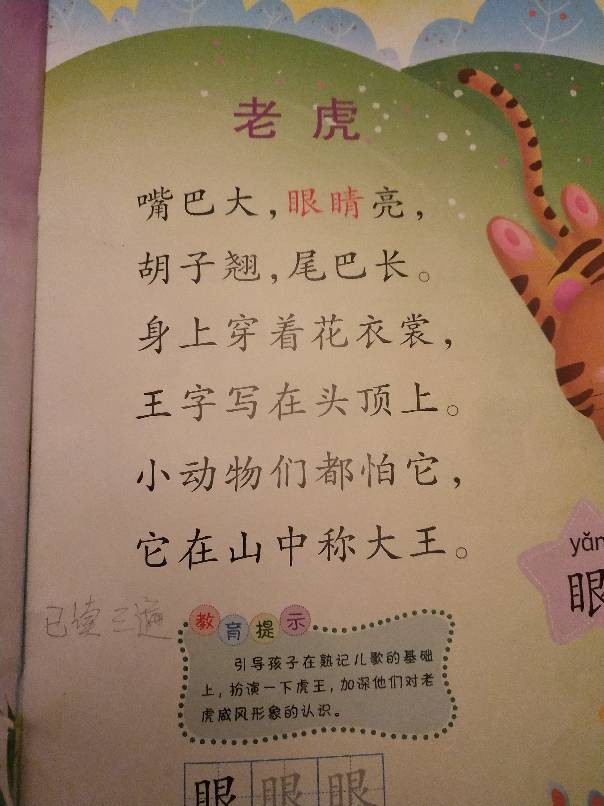 老虎
嘴巴大,眼睛亮,
胡子翘,尾巴长。
身上穿着花衣裳,
王字写在头顶上。
小动物们都怕它,
它在山中称大王。
yǎn
眼
已读三遍
教育提示
引导孩子在熟记儿歌的基础
上,扮演一下虎王,加深他们对老
虎威风形象的认识。
眼 眼 眼